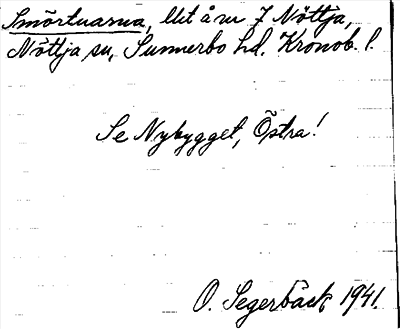 Smörtuarna, llit å nr 7 Nöttja,
Nöttja sn, Sunnerbo hd. Kronob. l.
Se Nybygget, Östra!
O. Segerbäck 1941.